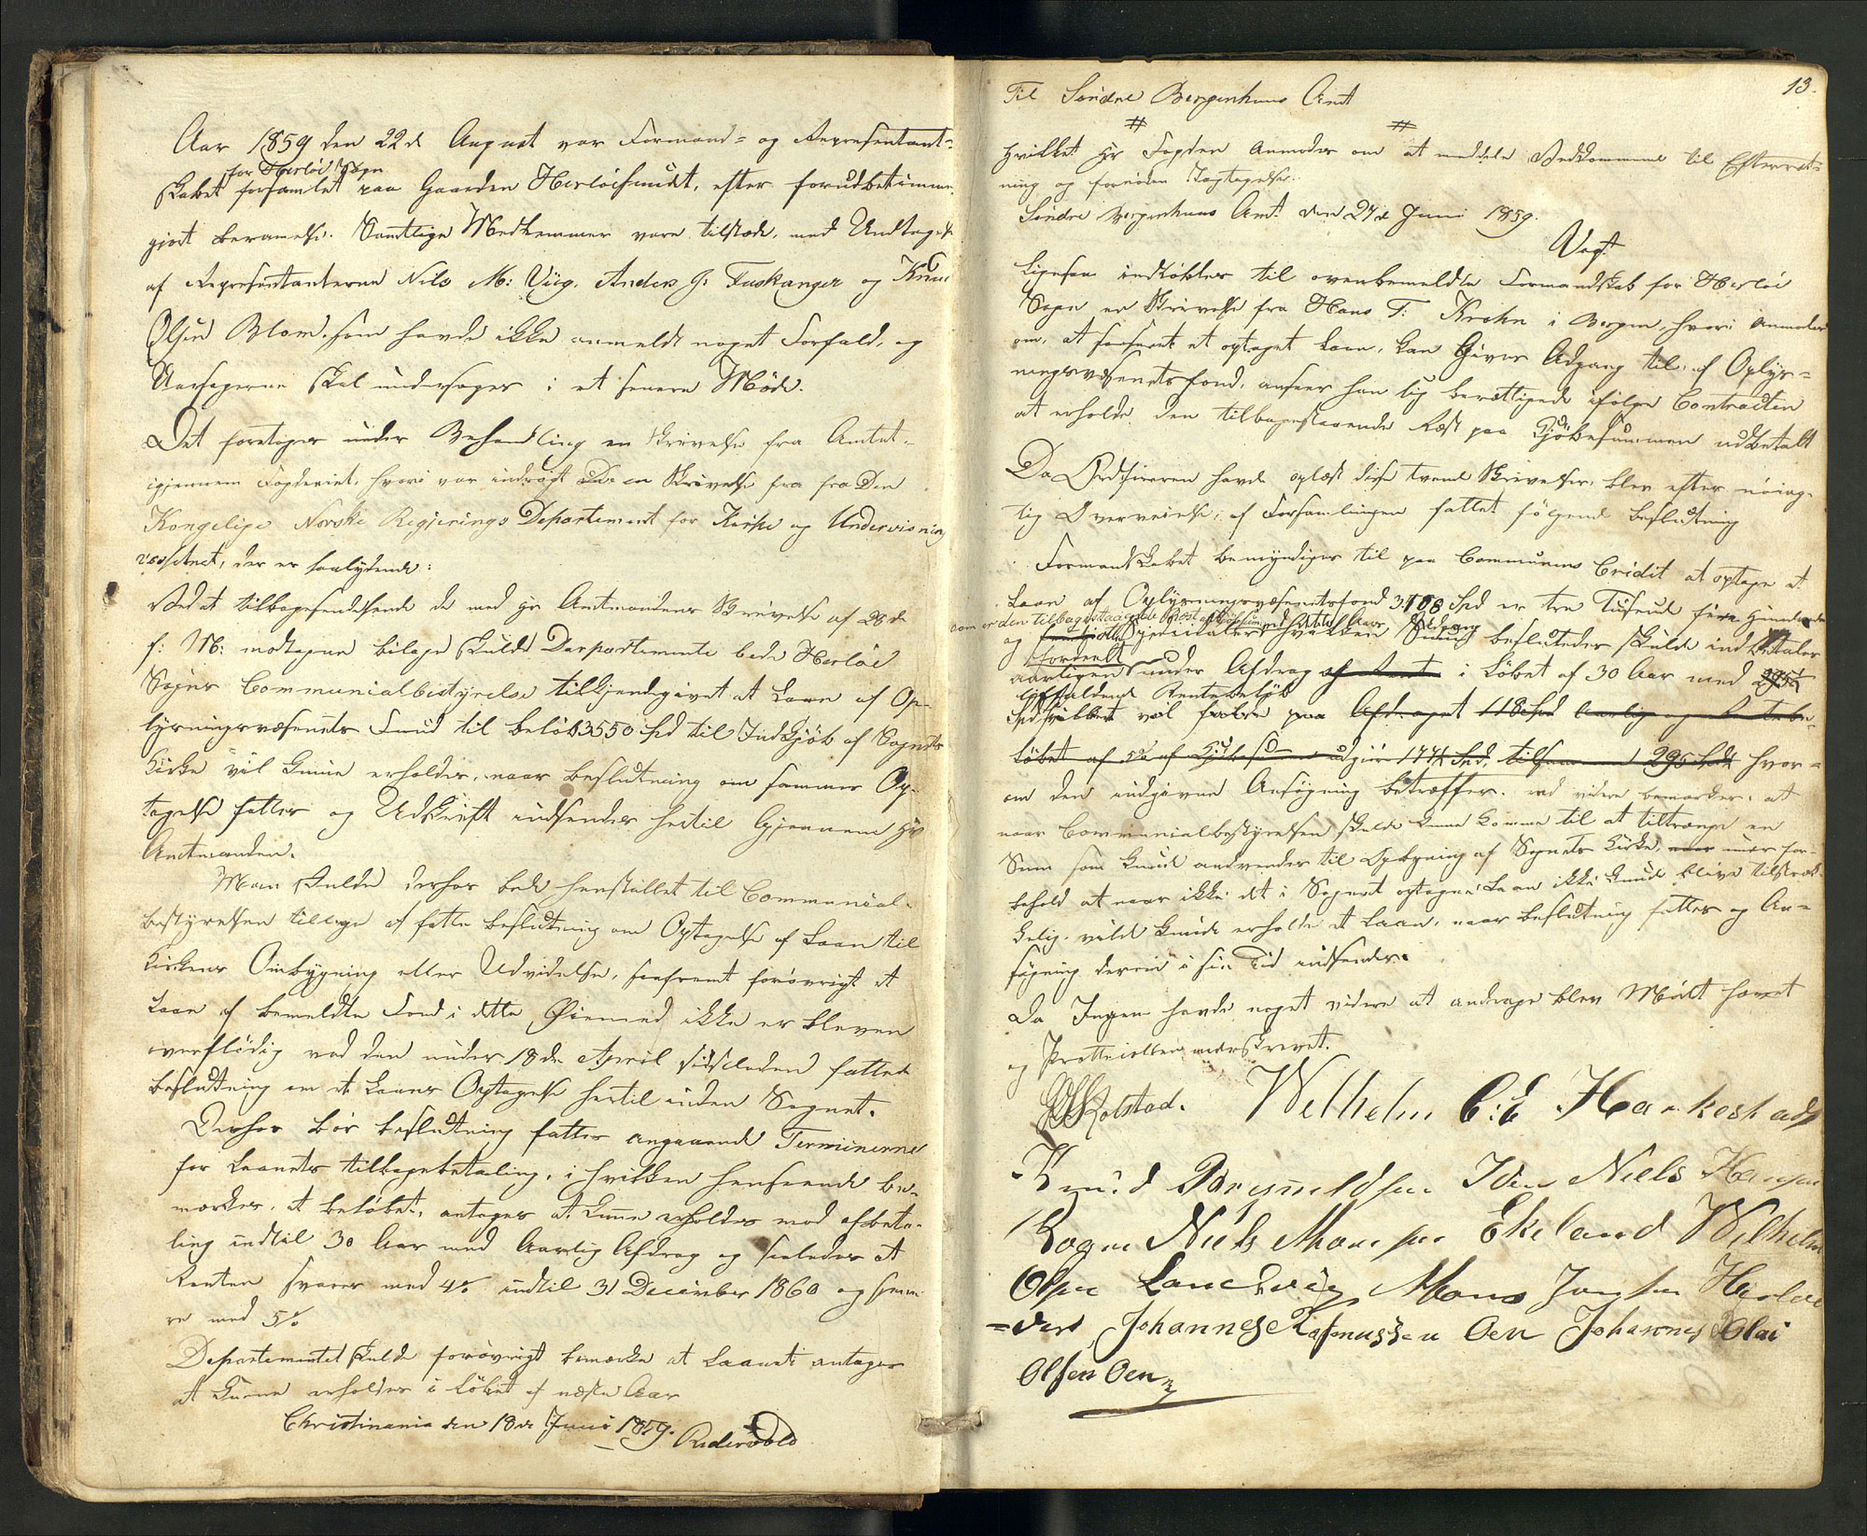 Aar 1859 den 22de August var Formand- og Repræsentant-
for Herlöe Sogn
skabet forsamlet paa Gaarden Herlöesundt, efter forudbestemme
gjort Berammelse. Samtlige Medlemmer vare tilstæde, med Undtagelse
af Repræsentanterne Nils M: Viig, Anders J: Fuskanger og Knud
Olsen Blom, som havde ikke anmeldt noget Forfald, og
Aarsagerne skal undersøges i et senere Møde.
Det foretoges under Behandling en Skrivelse fra Amtet
igjennem Fogderiet, hvori var indtagt en Skrivelse fra fra Den
Kongelige Norske Regjerings Departement for Kirke og Undervisnings
væsenet, der er saalydende:
Ved at tilbagesende de med Hr Amtmandens Skrivelse af 28de
f: M: modtagne Bilage skulde Departementet bede Herlöe
Sogns Communialbestyrelse tilkjendegivet at Laan af Op-
lysningsvæsenets Fond til Beløb 3550 Spd til Indkjöb af Sognets
Kirke vil kunne erholdes, naar Beslutning om sammes Op-
tagelse fattes og Udskrift indsendes hertil gjennem Hr
Amtmanden.
Man skulde derhos bede henstillet til Communial-
bestyrelsen tillige at fatte Beslutning om Optagelse af Laan til
Kirkens Ombygning eller Udvidelse, saafremt forøvrigt et
Laan af bemeldte Fond i dette Øiemed ikke er bleven
overflödig ved den under 18de April sidstleden fattet
Beslutning om et Laans Optagelse hertil inden Sognet.
Derhos bör Beslutning fattes angaaende Terminerne
for Laanets Tilbagebetaling, i hvilken Henseende be-
mærkes, at Beløbet, antages at kunne erholdes mod Afbeta-
ling indtil 30 Aar med Aarlig Afdrag og saaledes at
Renten svares med 4% indtil 31 December 1860 og senere
re med 5%
Departementet skulde forøvrigt bemærke at Laanet antages
at kunne erholdes i Løbet af næste Aar
Christiania den 18de Juni 1859. Riddervold
13.
Til Söndre Bergenhuus Amt
# #
Hvilket Hr Fogden anmodes om at meddele Vedkommende til Efterret-
ning og fornöden Iagttagelse.
Söndre Bergenhuus Amt den 27de Juni 1859.
Vogt
Ligesaa indløb til ovenbemeldte Formandskab for Herlöe
Sogn en Skrivelse fra Hans T: Krohn i Bergen, hvori anmodes
om, at saafremt et optaget Laan, kan gives Adgang til, af Oplys-
ningsvæsenets fond, anseer han sig berettiget ifølge Contracten
at erholde den tilbagestaaende Rest paa Kjöbesummen udbetalt
Da Ordføreren havde oplæst disse tvende Skrivelser, blev efter nöiag-
tig Overveielse, af Forsamlingen fattet følgende Beslutning
Formandskabet bemyndiges til paa Communens Credit at optage et
Laan af Oplysningsvæsenets fond 3,408 Spd er tre Tusinde fire Hundrede
som er den tilbagestaaende Rest af Kjöbesummen
og otte Specidaler hvilken Sum besluttedes skulde indbetales
aarligen under Afdrag af i Löbet af 30 Aar med
forfaldende Rentebeløb
Spd hvilket vil falde paa Afdraget 118 Spd Aarlig og Rentebe-
löbet af 5% af Kjöbesummen udgjør 177½ Spd. tilsammen 295 Spd hvor-
om den indgivne Ansøgning betræffer. ved videre bemærkes, at
naar Communialbestyrelsen skulde kunne komme til at tiltrænge en
Sum som kunde anvendes til Opbygning af Sognets Kirke, under for-
behold at naar ikke det i Sognet optagne Laan ikke kunde blive tilstræk-
kelig, vilde kunde erholde et Laan, naar Beslutning fattes og An-
søgning derom i sin Tid indsendes.
Da Ingen havde noget videre at andrage blev Mödet hævet
og Protocollen underskrevet.
Rolstad. Wilhelm C: E Harkestad
Knud Brynildsen Iden Niels Hansen
Bogn Niels Monsen Ekeland Wilhelm
Olsen Landsvig Mons Jansen Herlöe
Johannes Rasmussen Oen Johannes Olai
Olsen Oen